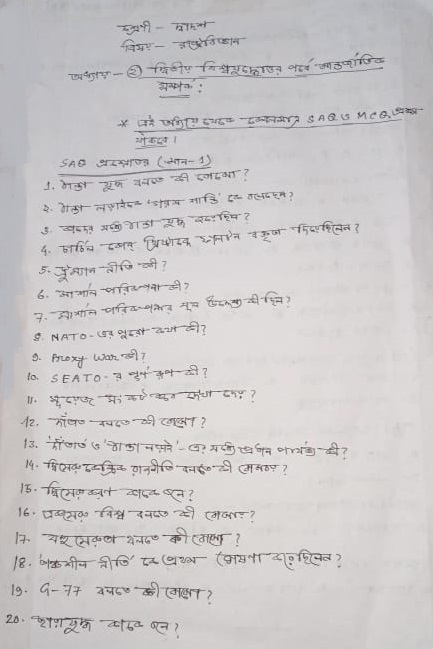 শ্রেণী - দ্বাদশ
বিষয় - রাষ্ট্রবিজ্ঞান
অধ্যায় - ② দ্বিতীয় বিশ্বযুদ্ধোত্তর পর্বে আন্তর্জাতিক
সম্পর্ক :
* এই অধ্যায় থেকে কেবলমাত্র SAQ ও MCQ প্রশ্ন
থাকবে।
SAQ প্রশ্নোত্তর (মান-1)
1. ঠাণ্ডা যুদ্ধ বলতে কী বোঝো?
2. ঠাণ্ডা লড়াইকে 'গরম শান্তি' কে বলেছেন?
3. কাদের মধ্যে ঠাণ্ডা যুদ্ধ হয়েছিল?
4. চার্চিল কোন বক্তৃতা দিয়েছিলেন?
5. ট্রুম্যান নীতি কী?
6. মার্শাল পরিকল্পনা কী?
7. মার্শাল পরিকল্পনার মূল উদ্দেশ্য কী ছিল?
8. NATO-এর পুরো কথা কী?
9. Proxy War কী?
10. SEATO-র পূর্ণ রূপ কী?
11. সুয়েজ সংকট কবে দেখা দেয়?
12. দাঁতাত বলতে কী বোঝো?
13. 'দাঁতাত' ও 'ঠাণ্ডা লড়াই'-এর মধ্যে প্রধান পার্থক্য কী?
14. দ্বিমেরুকেন্দ্রিক রাজনীতি বলতে কী বোঝায়?
15. দ্বিমেরুকরণ কাকে বলে?
16. একমেরু বিশ্ব বলতে কী বোঝায়?
17. বহুমেরুতা বলতে কী বোঝো?
18. 'পঞ্চশীল নীতি' কে প্রথম ঘোষণা করেছিলেন?
19. G-77 বলতে কী বোঝো?
20. ছায়াযুদ্ধ কাকে বলে?